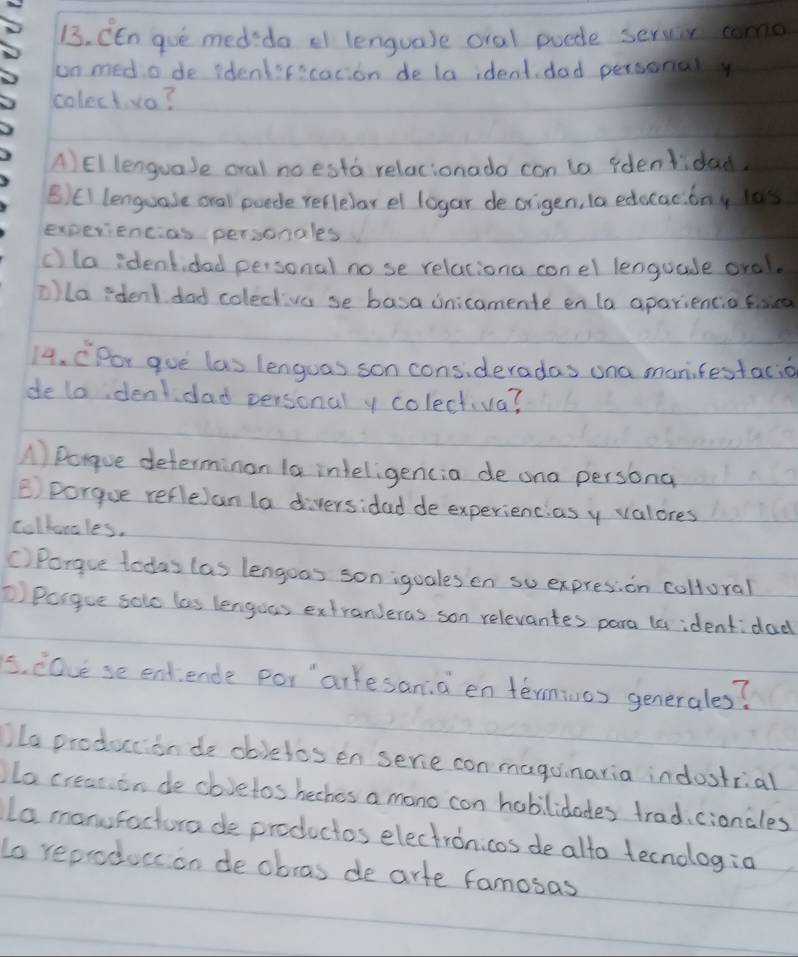 13. ¿En qué medida el lenguaje oral puede servir como
un medio de identificación de la identidad personal y
colectiva?
A) El lenguaje oral no está relacionado con la identidad.
B) El lenguaje oral puede reflejar el lugar de origen, la educación y las
experiencias personales
C) la identidad personal no se relaciona con el lenguaje oral.
D) La identidad colectiva se basa únicamente en la apariencia física
14. ¿Por qué las lenguas son consideradas una manifestació
de la identidad personal y colectiva?
A) Porque determinan la inteligencia de una persona
B) Porque reflejan la diversidad de experiencias y valores
culturales.
C) Porque todas las lenguas son iguales en su expresión cultural
D) Porque solo las lenguas extranjeras son relevantes para la identidad
15. ¿Qué se entiende por "artesanía" en términos generales?
) La producción de objetos en serie con maquinaria industrial
) La creación de objetos hechos a mano con habilidades tradicionales
La manufactura de productos electrónicos de alta tecnología
La reproducción de obras de arte famosas